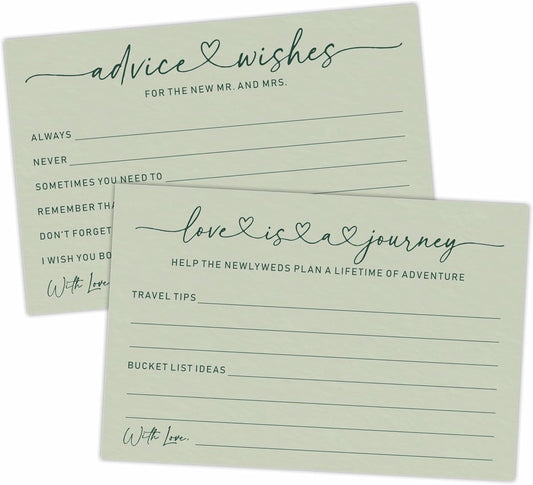 advice wishes
FOR THE NEW MR. AND MRS.
ALWAYS
NEVER
SOMETIMES YOU NEED TO
REMEMBER
DON'T FORGET
I WISH YOU
With Love.
love is a journey
HELP THE NEWLYWEDS PLAN A LIFETIME OF ADVENTURE
TRAVEL TIPS
BUCKET LIST IDEAS
With Love.